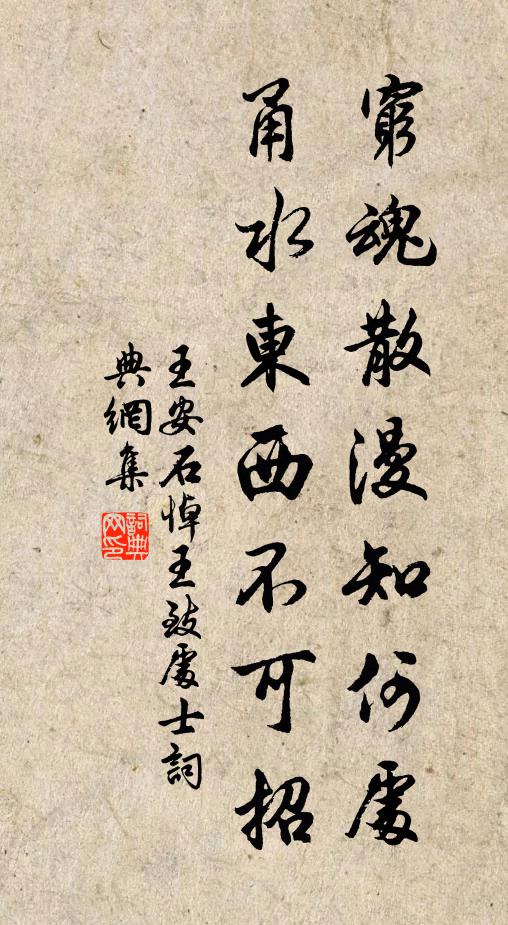 窮魂散漫知何處
甬水東西不可招
王安石悼王致處士詞
典網集
詞典网印